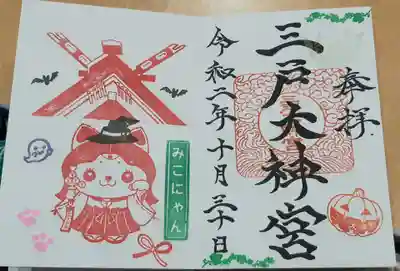 奉拝
三戸大神宮
令和二年十月三十日
みこにゃん